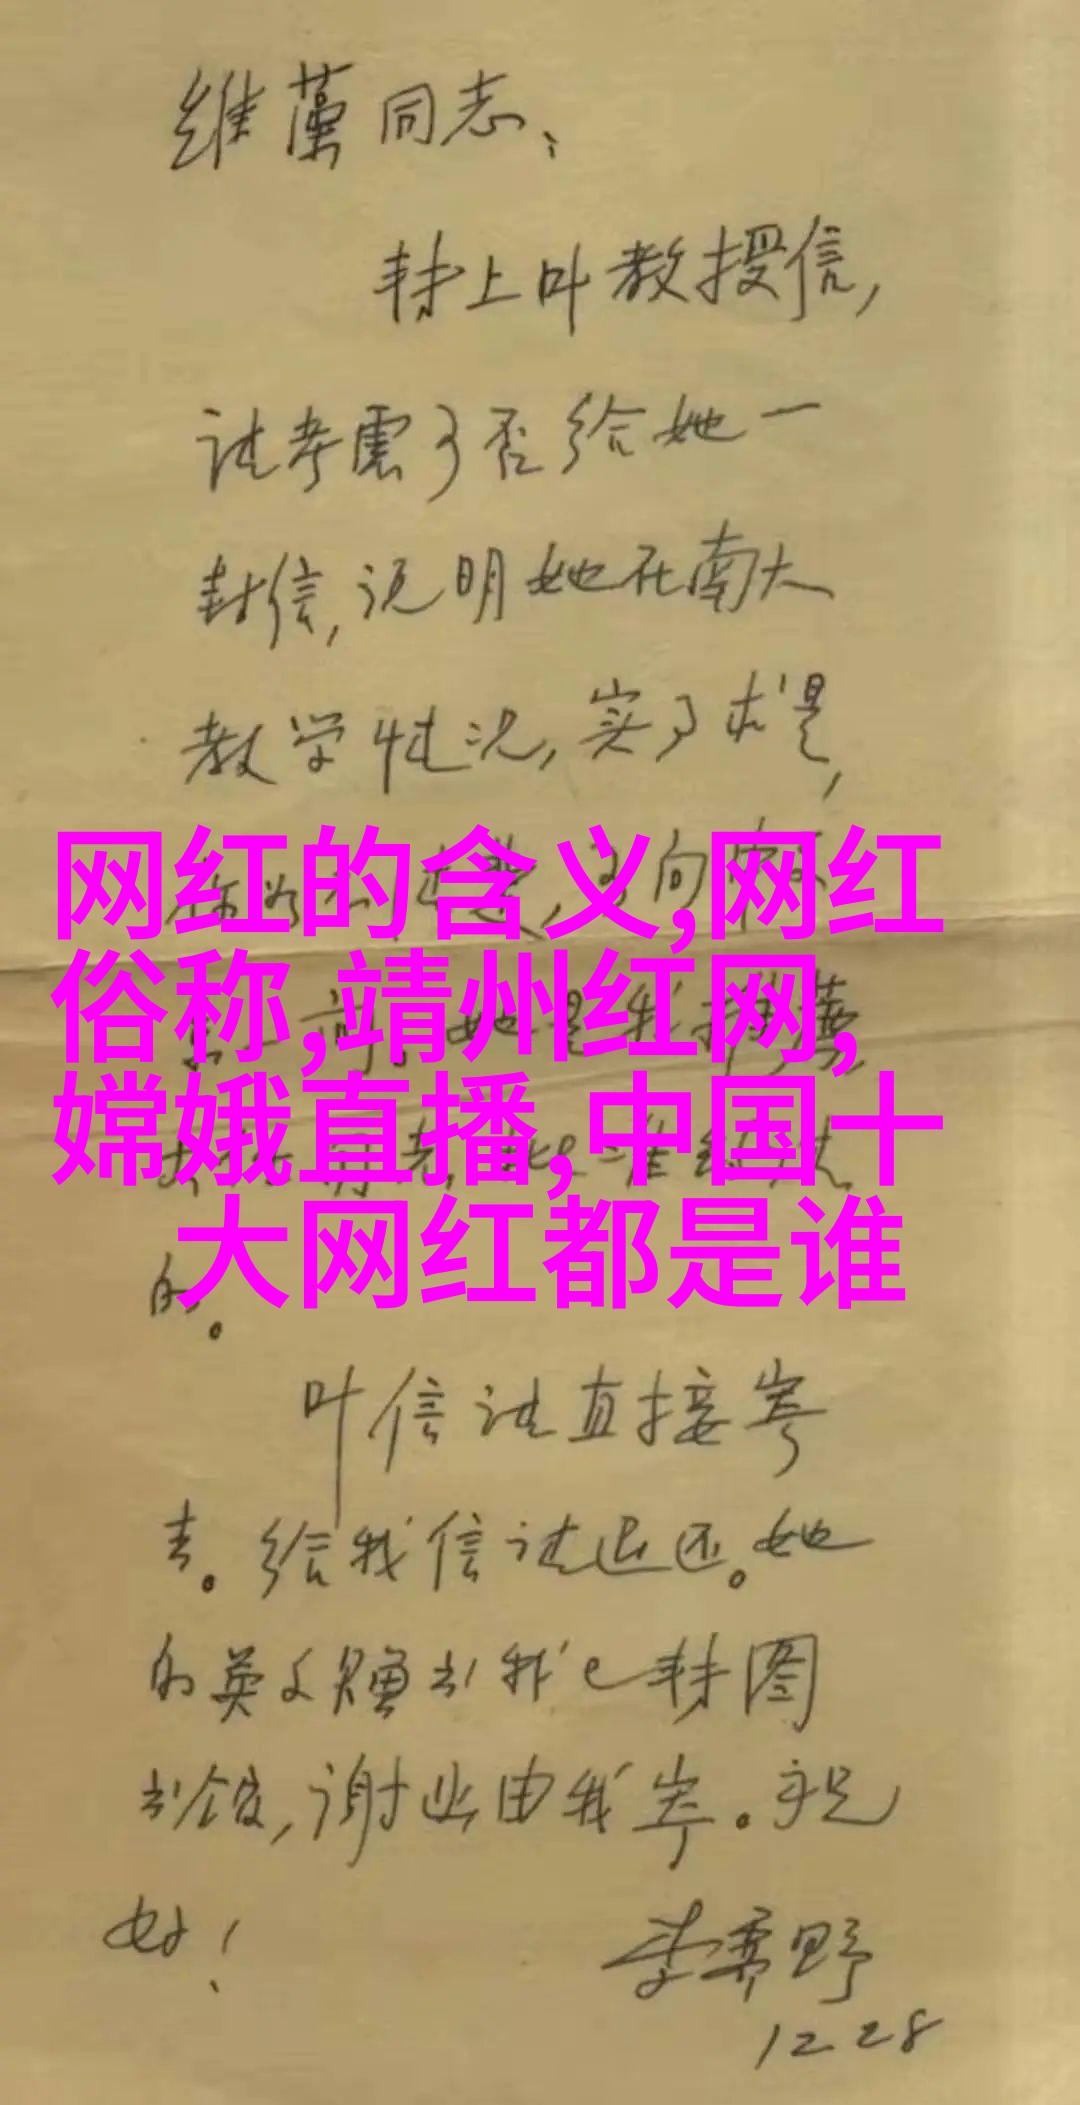 维藻同志：
转上叶教授信，
请考虑可否给她一
封信，说明她在南大
教学情况，实事求是，
网红的含义,网红
俗称,靖州红网,
嫦娥直播,中国十
大网红都是谁
的。
叶信请直接寄
去。给我信请退还。她
的英文赠书我已转图
书馆，谢函由我寄。祝
好！
李霁野
12 28